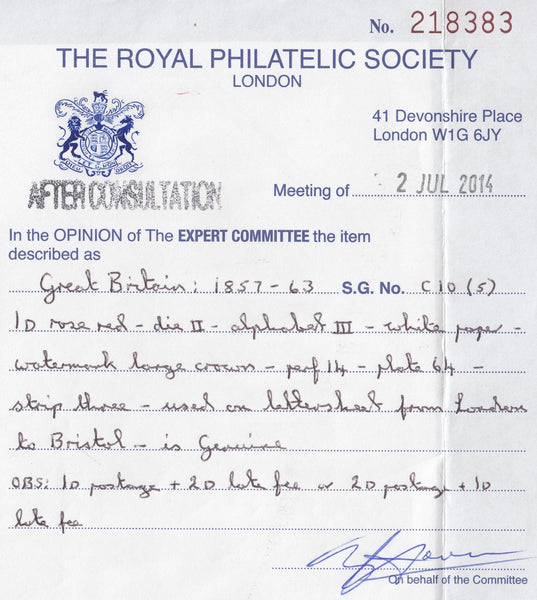 No. 218383
THE ROYAL PHILATELIC SOCIETY
LONDON
41 Devonshire Place
London W1G 6JY
AFTER CONSULTATION
Meeting of 2 JUL 2014
In the OPINION of The EXPERT COMMITTEE the item
described as
Great Britain: 1857-63 S.G. No. C10 (5)
1D rose red - die II - alphabet III - white paper -
watermark large crown - perf 14 - plate 64 -
strip three - used on lettersheet from London
to Bristol - is Genuine
OBS: 1D postage + 2D late fee or 2D postage + 1D
late fee
On behalf of the Committee